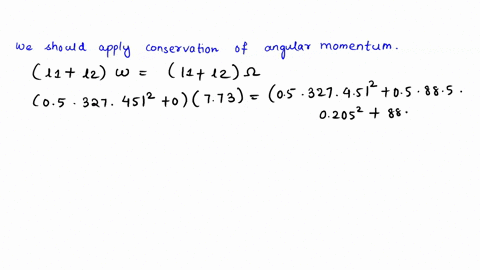 we should apply conservation of angular momentum.
(I1 + I2) ω = (I1 + I2) Ω
(0.5 . 327 . 4.51² + 0) (7.73) = (0.5 . 327 . 4.51² + 0.5 . 88.5 .
0.205² + 88.